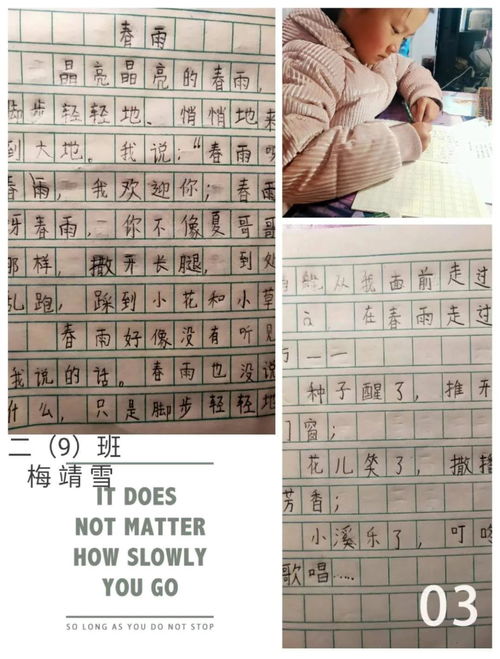 春雨
晶亮晶亮的春雨,
脚步轻轻地、悄悄地来
到大地。我说:“春雨呀
春雨,我欢迎你;春雨
呀春雨,你不像夏哥哥
那样,撒开长腿,到处
乱跑,踩到小花和小草
春雨好像没有听见
我说的话。春雨也没说
什么,只是脚步轻轻地
从我面前走过
在春雨走过
种子醒了,推开
门窗;
花儿笑了,撒播
芳香;
小溪乐了,叮咚
歌唱……
二(9)班
梅靖雪
IT DOES
NOT MATTER
HOW SLOWLY
YOU GO
SO LONG AS YOU DO NOT STOP
03